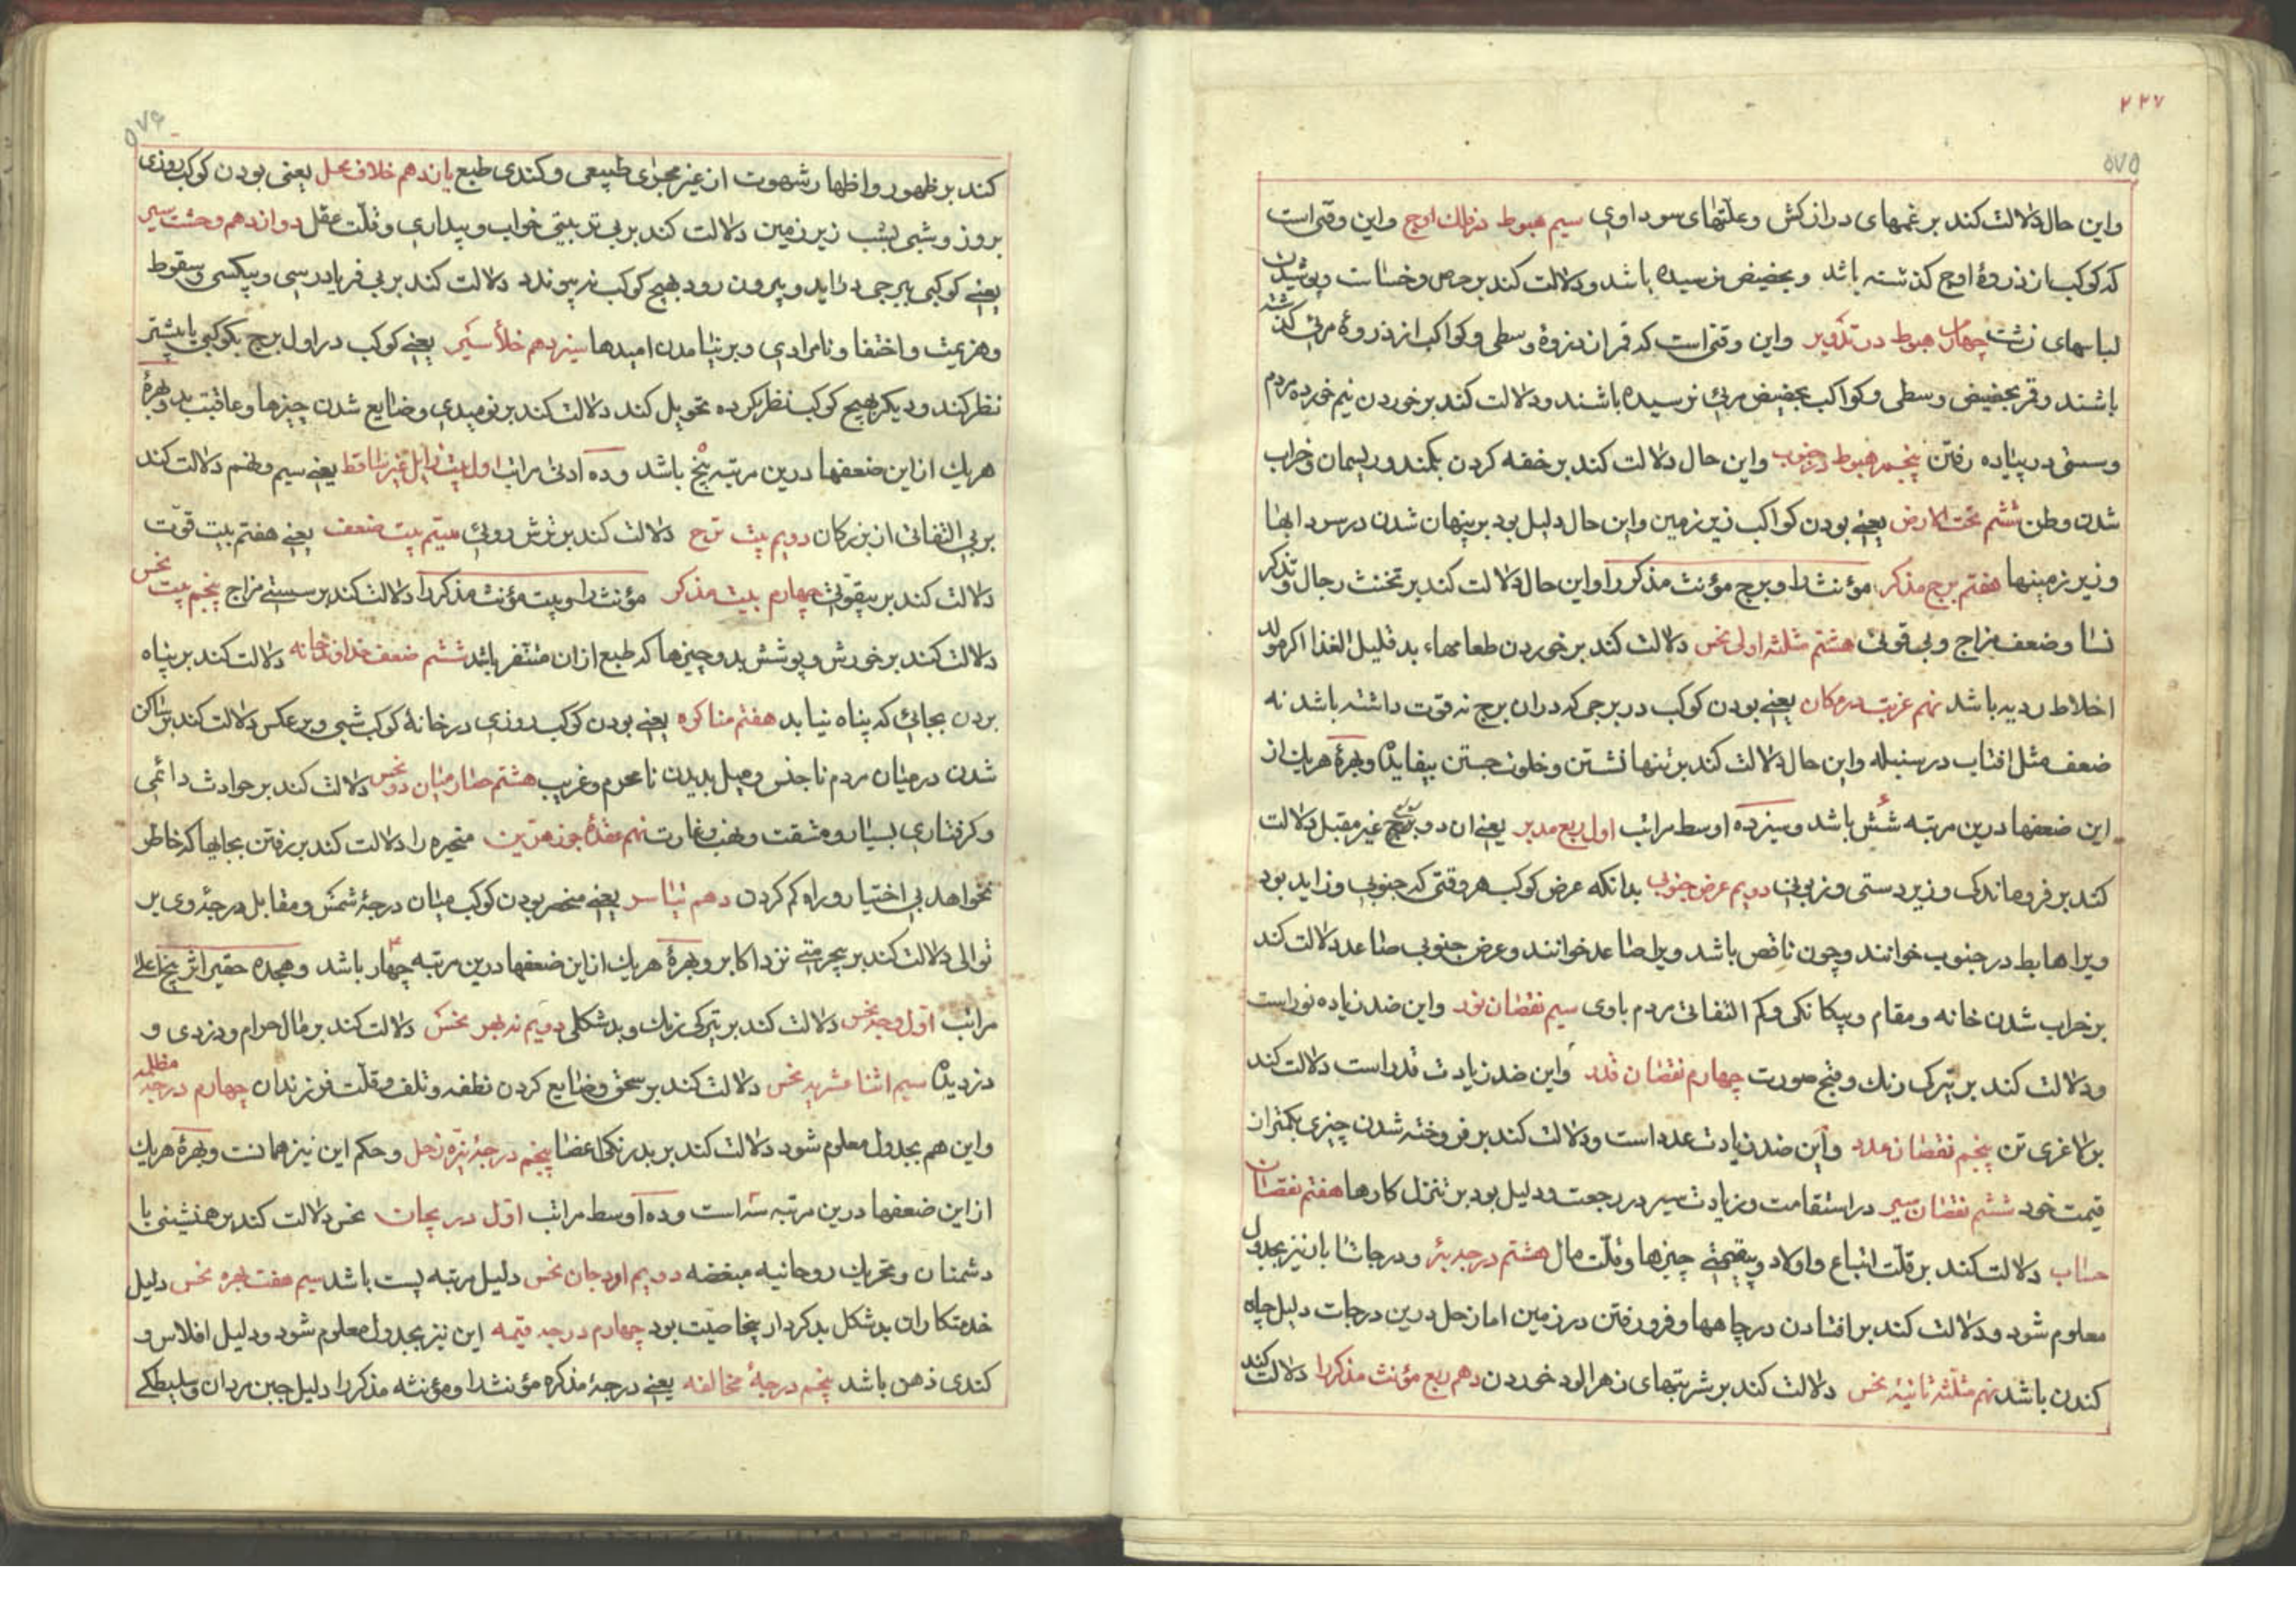 ۲۲۷
۵۷۵
واین حال دلالت کند بر غمهای دراز کش وعلتهای سوداوی سیم هبوط در فلک اوج واین وقتی است
که کوکب از ذروهٔ اوج کذشته باشد وبحضیض نرسیده باشد ودلالت کند بر حرص وخساست وپوشیدن
لباسهای زشت چهارم هبوط در تدویر واین وقتی است که قمر از ذروهٔ وسطی وکواکب از ذروهٔ مرئی کذشته
باشند وقمر بحضیض وسطی وکواکب بحضیض مرئی نرسیده باشند ودلالت کند بر خوردن نیم خورده مردم
وسستی در پیاده رفتن پنجم هبوط در جنوب واین حال دلالت کند بر خفه کردن بکمند وریسمان وخراب
شدن وطن ششم تحت الارض یعنی بودن کواکب زیر زمین واین حال دلیل بود بر پنهان شدن در سردابها
وزیر زمینها هفتم برج مذکر مؤنث را وبرج مؤنث مذکر را واین حال دلالت کند بر تخنث رجال وتذکر
نسا وضعف مزاج وبی قوتی هشتم مثلثه اولی نحس دلالت کند بر خوردن طعامهاء بد قلیل الغذا اکر مولد
اخلاط ردیه باشد نهم غربت در مکان یعنی بودن کوکب در برجی که دران برج نه قوت داشته باشد نه
ضعف مثل افتاب در سنبله واین حال دلالت کند بر تنها نشستن وخلوت جستن بیفایده وبهرهٔ هریک از
این ضعفها درین مرتبه شش باشد وسیزده اوسط مراتب اول ربع مدبر یعنی ان دو ربع غیر مقبل دلالت
کند بر فروماندکی وزیردستی وزبونی دویم عرض جنوبی بدانکه عرض کوکب هر وقتی که جنوبی وزاید بود
ویرا هابط در جنوب خوانند وچون ناقص باشد ویرا صاعد خوانند وعرض جنوبی صاعد دلالت کند
بر خراب شدن خانه ومقام وبیکانکی وکم التفاتی مردم باوی سیم نقصان نور واین ضد زیاده نور است
ودلالت کند بر تیرکی رنک وقبح صورت چهارم نقصان قدر واین ضد زیادت قدر است دلالت کند
بر لاغری تن پنجم نقصان عدد واین ضد زیادت عدد است ودلالت کند بر فروخته شدن چیزی بکمتر از
قیمت خود ششم نقصان سیر در استقامت وزیادت سیر در رجعت ودلیل بود بر تنزل کارها هفتم نقصان
حساب دلالت کند بر قلت اتباع واولاد وبیقیمتی چیزها وقلت مال هشتم درجه بئر ودرجات ابار نیز بجدول
معلوم شود ودلالت کند بر افتادن در چاهها وفرو رفتن در زمین اما زحل درین درجات دلیل چاه
کندن باشد نهم مثلثه ثانیهٔ نحس دلالت کند بر شربتهای زهر الود خوردن دهم ربع مؤنث مذکر را دلالت کند
۵۷۶
کند بر ظهور واظهار شهوت از غیر مجرای طبیعی وکندی طبع یازدهم خلاف محل یعنی بودن کوکب روزی
بروز وشبی بشب زیر زمین دلالت کند بر بی ترتیبی خواب وبیداری وقلت عقل دوازدهم وحشت سیر
یعنی کوکبی ببرجی دراید وبیرون رود بهیچ کوکب نپیوندد دلالت کند بر بی فریادرسی وبیکسی وسقوط
وهزیمت واختفا ونامرادی وبر نیامدن امیدها سیزدهم خلأ سیر یعنی کوکب در اول برج بکوکبی یا بیشتر
نظر کند ودیکر بهیچ کوکب نظر نکرده تحویل کند دلالت کند بر نومیدی وضایع شدن چیزها وعاقبت بد وبهرهٔ
هریک از این ضعفها درین مرتبه پنج باشد وده ادنی مراتب اول بیت زایل غیر ساقط یعنی سیم ونهم دلالت کند
بر بی التفاتی از بزرکان دویم بیت ترح دلالت کند بر ترش روئی سیم بیت ضعف یعنی هفتم بیت قوت
دلالت کند بر بیقوتی چهارم بیت مذکر مؤنث را وبیت مؤنث مذکر را دلالت کند بر سستی مزاج پنجم بیت نحس
دلالت کند بر خورش وپوشش بد وچیزها که طبع ازان متنفر باشد ششم ضعف خداوند خانه دلالت کند بر پناه
بردن بجائی که پناه نیابد هفتم مناکره یعنی بودن کوکب روزی در خانهٔ کوکب شبی وبر عکس دلالت کند بر ساکن
شدن در میان مردم ناجنس ومیل بدیدن نامحرم وغریب هشتم حصار میان دو نحس دلالت کند بر حوادث دائمی
وکرفتاری بسیار ومشقت ونهب وغارت نهم عقدهٔ جوزهرین متحیره را دلالت کند بر رفتن بجایها که خاطر
نخواهد بی اختیار وراه کم کردن دهم تیاسر یعنی منحصر بودن کوکب میان درجهٔ شمس ومقابل درجهٔ وی بر
توالی دلالت کند بر بیحرمتی نزد اکابر وبهرهٔ هریک از این ضعفها درین مرتبه چهار باشد وهجده حقیر اثر پنج اعلی
مراتب اول وجه نحس دلالت کند بر تیرکی رنک وبدشکلی دویم نه بهر نحس دلالت کند بر مال حرام ودزدی و
دزدیده سیم اثنا عشریه نحس دلالت کند بر سحق وضایع کردن نطفه وتلف وقلت فرزندان چهارم درجه مظلمه
واین هم بجدول معلوم شود دلالت کند بر بدرنکی اعضا پنجم درجهٔ نیره زحل وحکم این نیز همانست وبهرهٔ هریک
از این ضعفها درین مرتبه سه است وده اوسط مراتب اول دریجات نحس دلالت کند بر همنشینی با
دشمنان وتحریک روحانیه مبغضه دویم اودجان نحس دلیل مرتبه پست باشد سیم هفت بهره نحس دلیل
خدمتکاران بدشکل بدکردار بیخاصیت بود چهارم درجه قتمه این نیز بجدول معلوم شود ودلیل افلاس و
کندی ذهن باشد پنجم درجهٔ مخالفه یعنی درجهٔ مذکره مؤنث را ومؤنثه مذکر را دلیل جبن مردان وسلیطکی